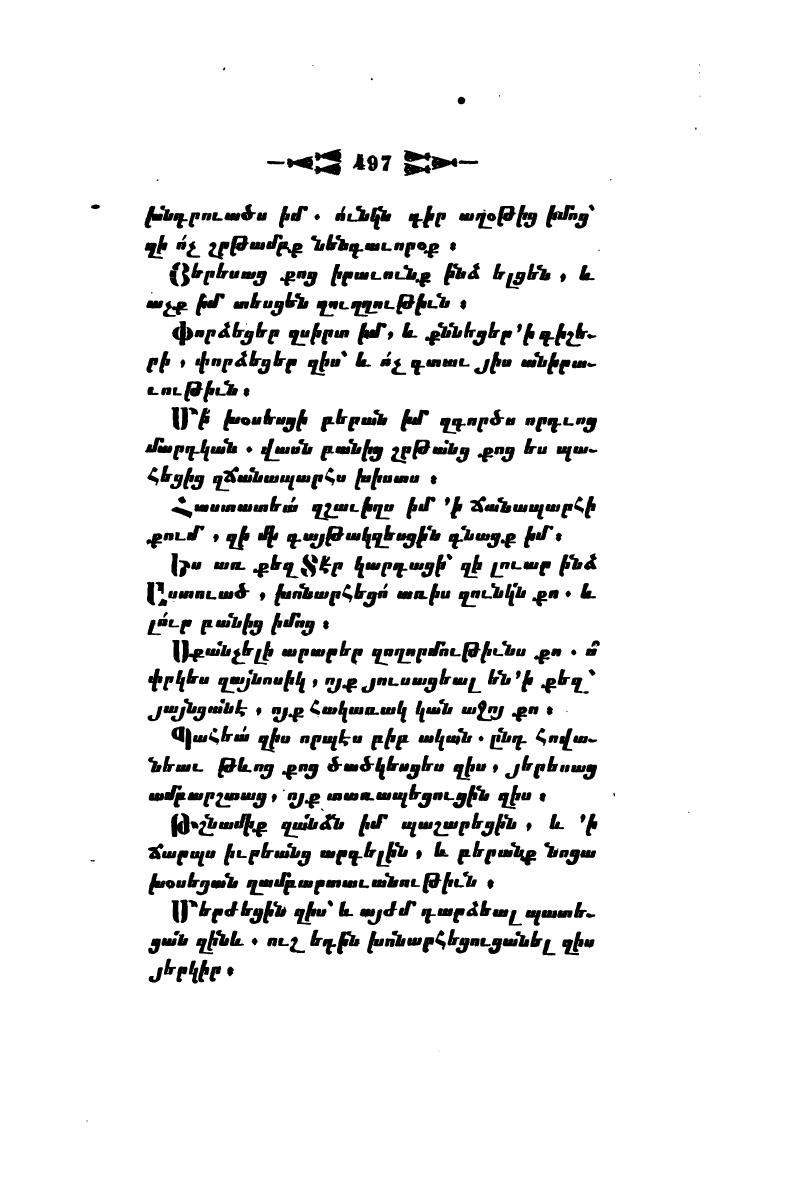 497
խնդրուածս իմ . ո՛ւնկն դիր աղօթից իմոց՝
զի ո՛չ շրթամբք նենգաւորօք ։
Յերեսաց քոց իրաւունք ինձ ելցեն , և
աչք իմ տեսցեն զուղղութիւն ։
Փորձեցեր զսիրտ իմ , և քննեցեր ՚ի գիշե-
րի , փորձեցեր զիս՝ և ո՛չ գտաւ յիս անիրա-
ւութիւն ։
Մի՛ խօսեսցի բերան իմ զգործս որդւոց
մարդկան . վասն բանից շրթանց քոց ես պա-
հեցից զճանապարհս խիստս ։
Հաստատեա՛ զշաւիղս իմ ՚ի ճանապարհի
քում , զի մի՛ գայթակղեսցին գնացք իմ ։
Ես առ քեզ Տէր կարդացի՝ զի լուար ինձ
Աստուած , խոնարհեցո՛ առիս զունկն քո . և
լո՛ւր բանից իմոց ։
Սքանչելի արարեր զողորմութիւնս քո . ո՞
փրկես զայնոսիկ , ոյք յուսացեալ են ՚ի քեզ՝
յայնցանէ , ոյք հակառակ կան աջոյ քո ։
Պահեա՛ զիս որպէս բիբ ական . ընդ հովա-
նեաւ թևոց քոց ծածկեսցես զիս , յերեսաց
ամբարշտաց , ոյք տառապեցուցին զիս ։
Թշնամիք զանձն իմ պաշարեցին , և ՚ի
ճարպս իւրեանց արգելին , և բերանք նոցա
խօսեցան զամբարտաւանութիւն ։
Մերժեցին զիս՝ և այժմ դարձեալ պատե-
ցան զինև . ուշ եդին խոնարհեցուցանել զիս
յերկիր ։